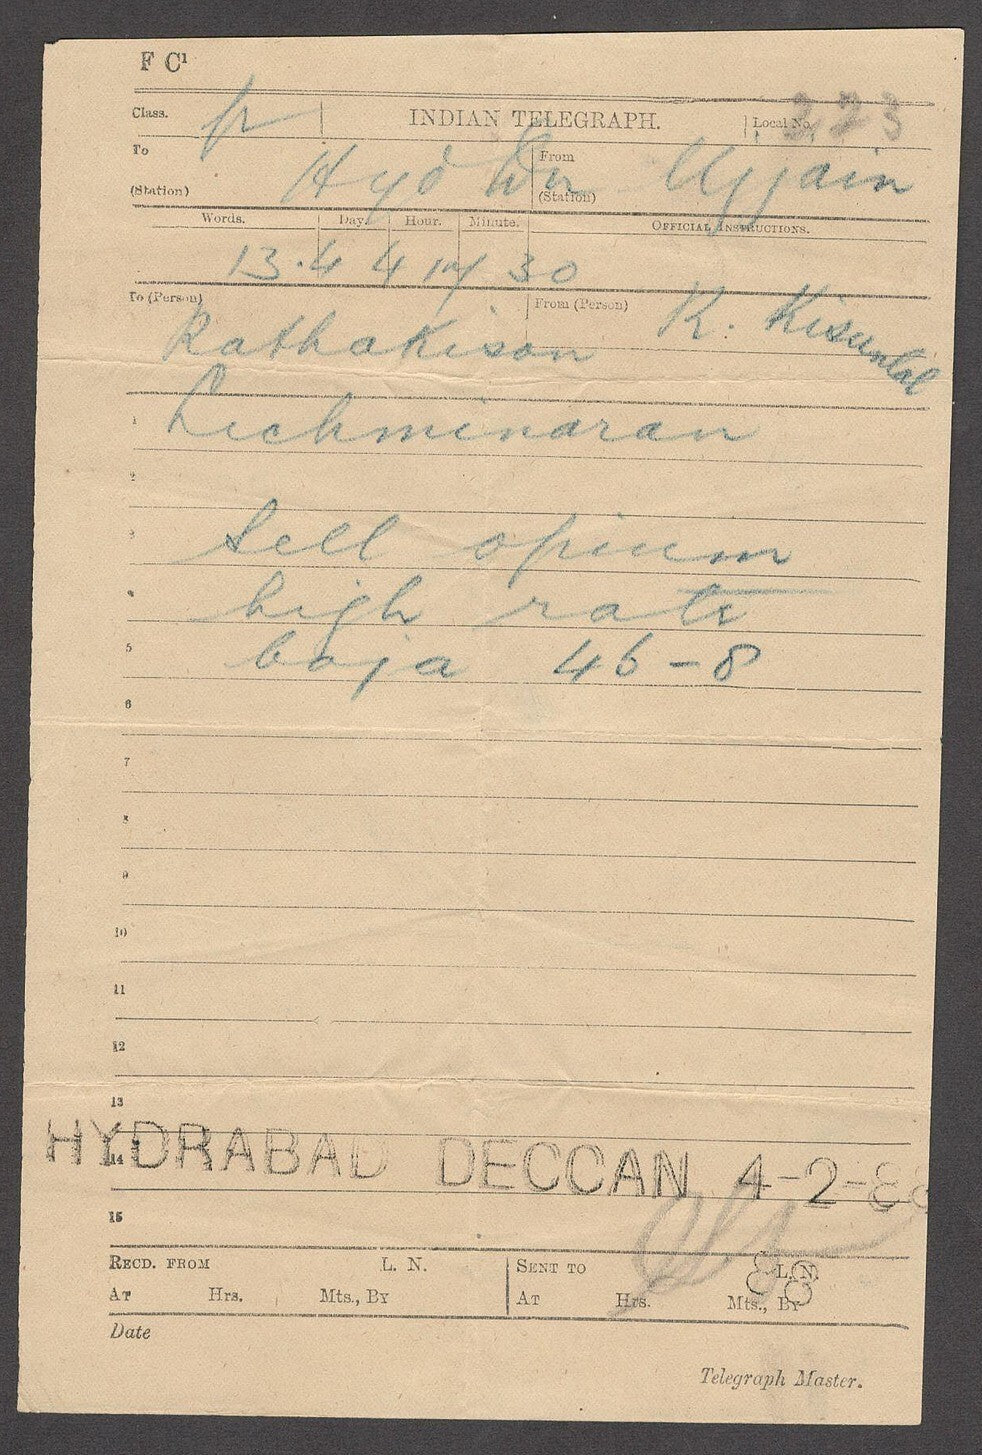 F C¹
Class. INDIAN TELEGRAPH. Local No. 223
To (Station) Hyd Dn From (Station) Ujjain
Words. Day. Hour. Minute. OFFICIAL INSTRUCTIONS.
13.4 4 17 30
To (Person) Rathakison From (Person) K. Kisunlal
1 Lichminaran
2
3 Sell opium
4 high rate
5 boja 46-8
6
7
8
9
10
11
12
13
HYDRABAD DECCAN 4-2-8
14
15
RECD. FROM L. N. SENT TO L. N.
AT Hrs. Mts., By AT Hrs. Mts., By
Date
Telegraph Master.